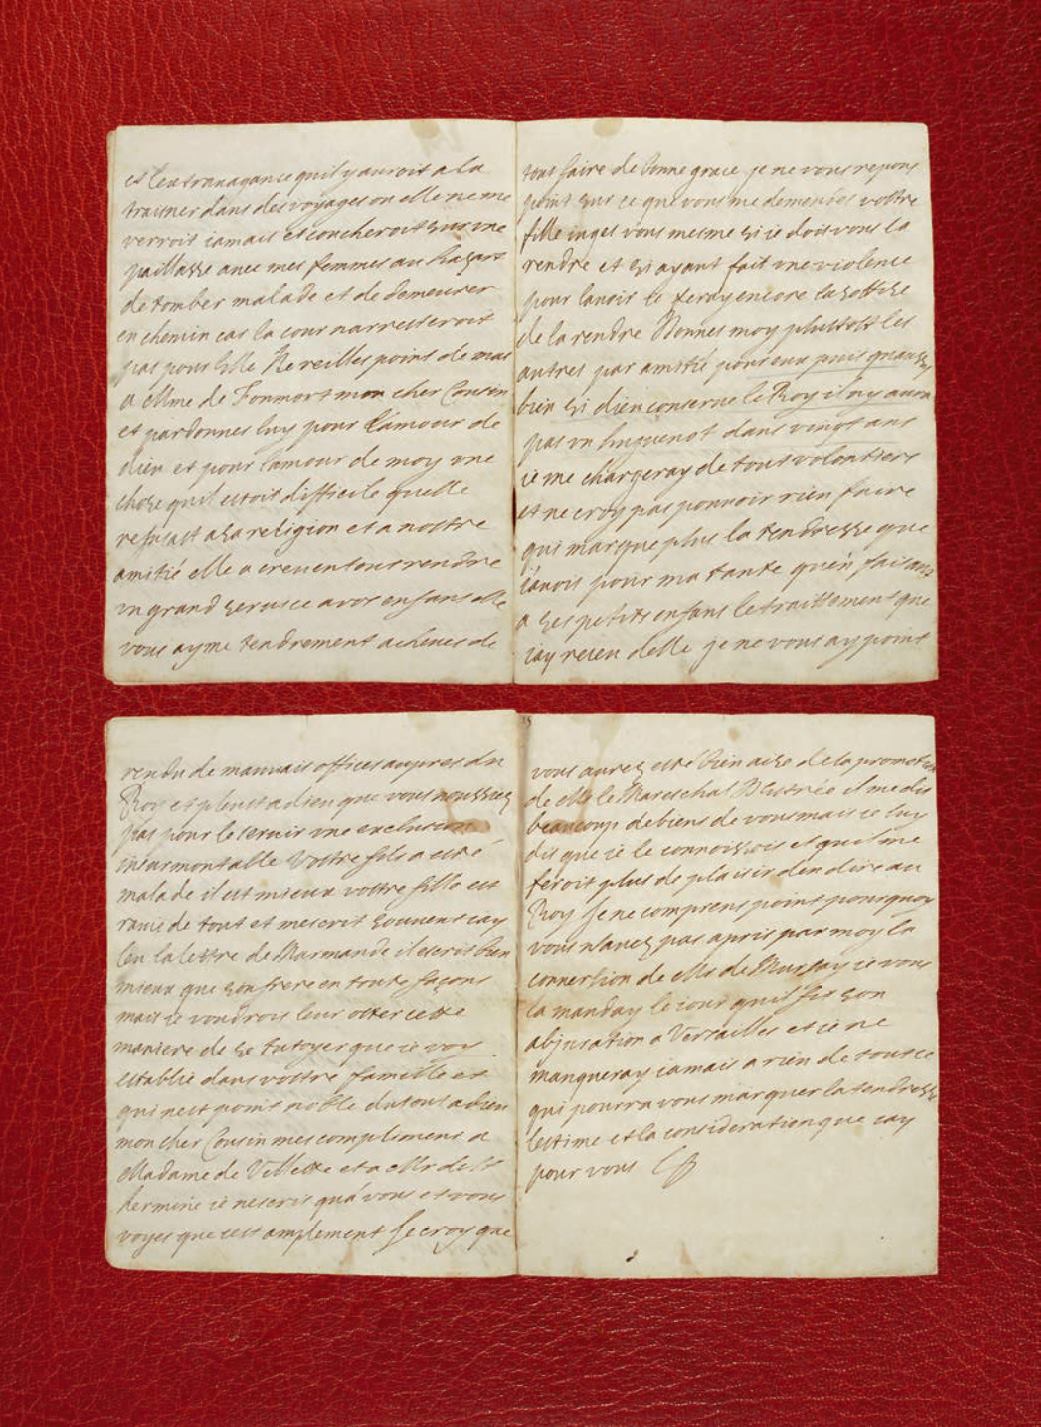 et lextravagance quil y auroit a la
traisner dans des voyages ou elle ne me
verroit iamais et coucheroit sur une
paillasse avec mes femmes au hazard
de tomber malade et de demeurer
en chemin car la cour narresteroit
pas pour Elle Ne veilles point de mal
a Mme de Fonmort mon cher Cousin
et pardonnes luy pour l'amour de
dieu et pour lamour de moy une
chose quil estoit difficile quelle
refusast a sa religion et a nostre
amitié elle a creu en tout rendre
un grand service a vos enfans elle
vous ayme tendrement acheves de
tout faire de bonne grace je ne vous repons
point sur ce que vous me demendes vostre
fille iuges vous mesme si ie dois vous la
rendre et si ayant fait une violence
pour lavoir ie feray encore la sottise
de la rendre Donnes moy plustost les
autres par amitié pour eux puis quaussy
bien si dieu conserve le Roy il ny aura
pas un huguenot dans vingt ans
ie me chargeray de tout volontiers
et ne croy pas pouvoir rien faire
qui marque plus la tendresse que
i'avois pour ma tante qu'en faisant
a ses petits enfans le traittement que
iay receu delle je ne vous ay point
rendu de mauvais offices aupres du
Roy et pleust a dieu que vous neussiez
pas pour le servir une exclusion
insurmontable Vostre fils a esté
malade il est mieux vostre fille est
ravie de tout et mescrit souvent iay
leu la lettre de Marmande il escrit bien
mieux que son frere en toute façons
mais ie voudrois leur oster cette
maniere de se tutoyer que ie voy
establie dans vostre famille et
qui nest point noble du tout adieu
mon cher Cousin mes compliment a
Madame de Villette et a Mr de St
hermine ie nescris qu'a vous et vous
voyes que cest amplement Je croy que
vous aurez esté bien aise de la promotion
de Mr le Mareschal Destrée il me dit
beaucoup de biens de vous mais ie luy
dit que ie le connoissois et quil me
feroit plus de plaisir den dire au
Roy Je ne comprens point pourquoy
vous n'avez pas apris par moy la
conversion de Mr de Mursay ie vous
la manday le iour quil fit son
abjuration a Versailles et ie ne
manqueray iamais a rien de tout ce
qui pourra vous marquer la tendresse
lestime et la consideration que iay
pour vous